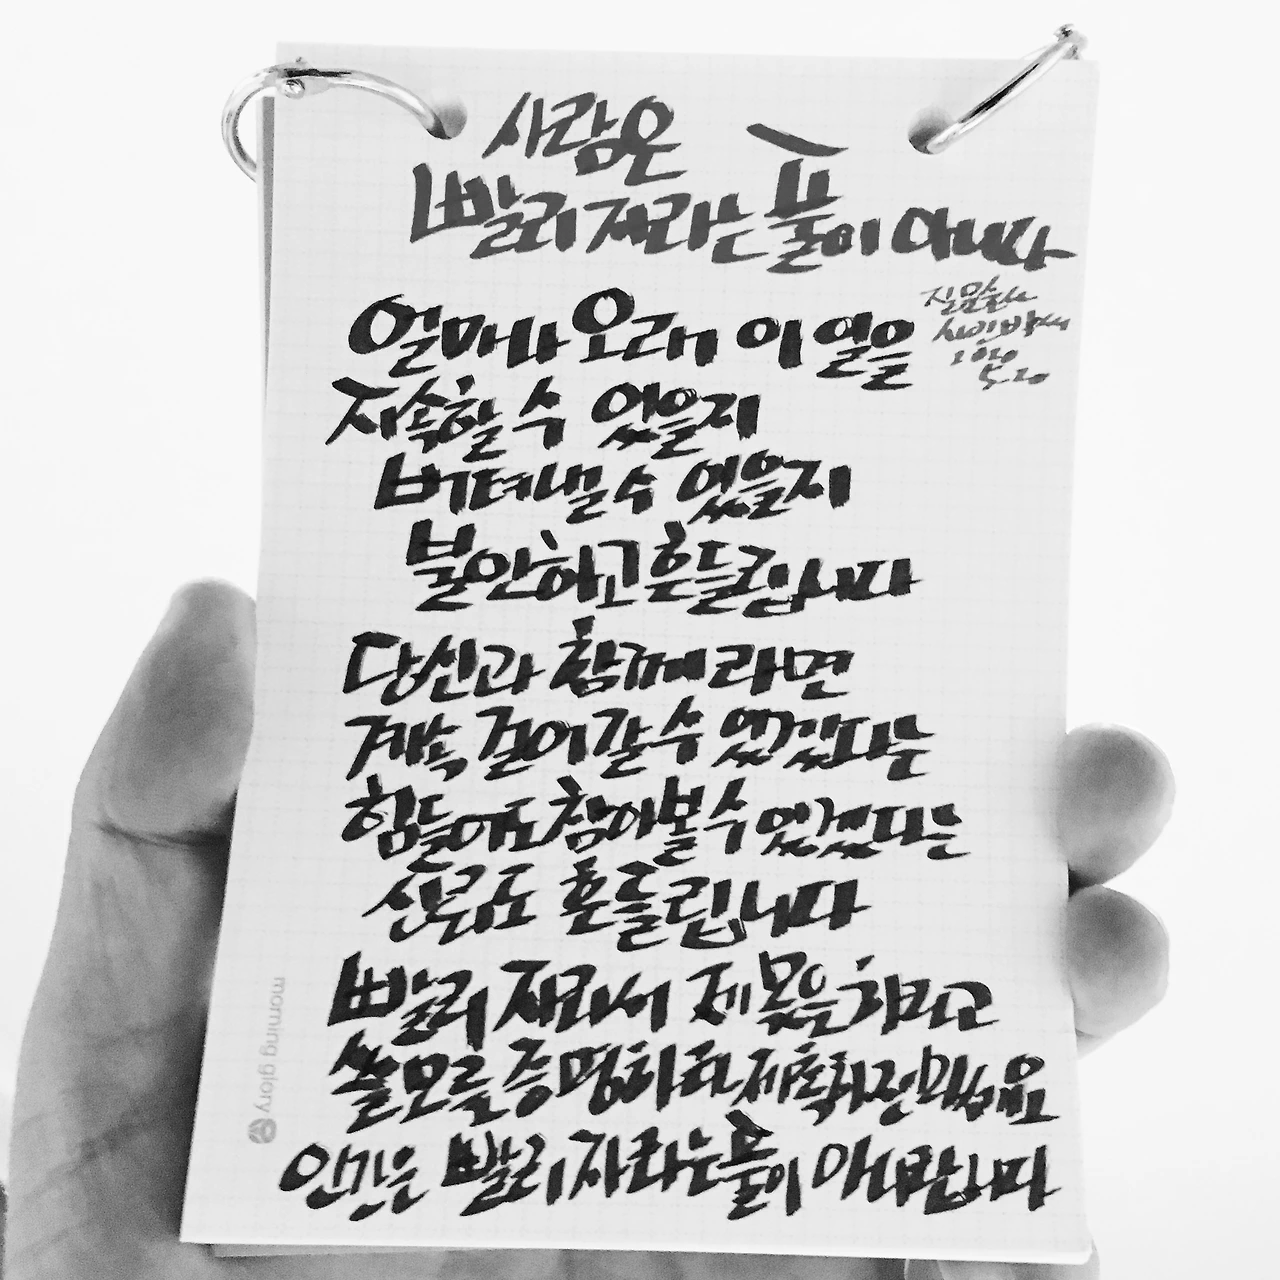 사람은
빨리 자라는 풀이 아니다
얼마나 오래 이 일을
지속할 수 있을지
버텨낼 수 있을지
불안하고 흔들립니다
당신과 함께라면
계속 걸어갈 수 있겠다는
힘들어도 참아볼 수 있겠다는
신뢰도 흔들립니다
빨리 자라서 제 몫을 하라고
쓸모를 증명하라 재촉하진 마세요
인간은 빨리 자라는 풀이 아니랍니다
2020
5.20
morning glory